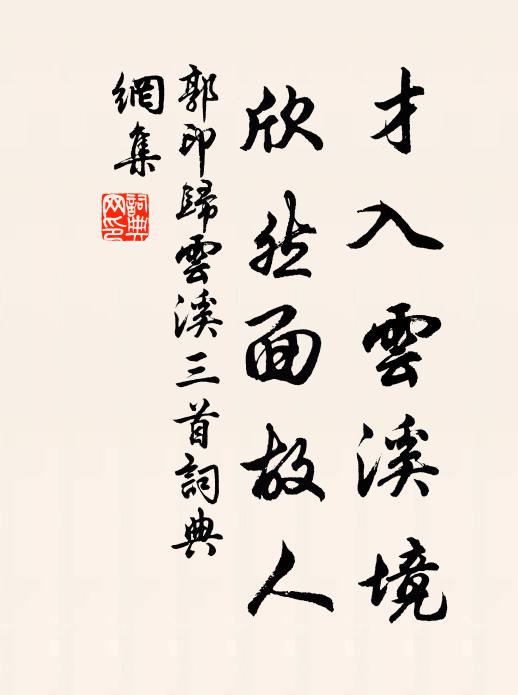 才入雲溪境
欣然面故人
郭印歸雲溪三首詞典
網集
詞典
网印